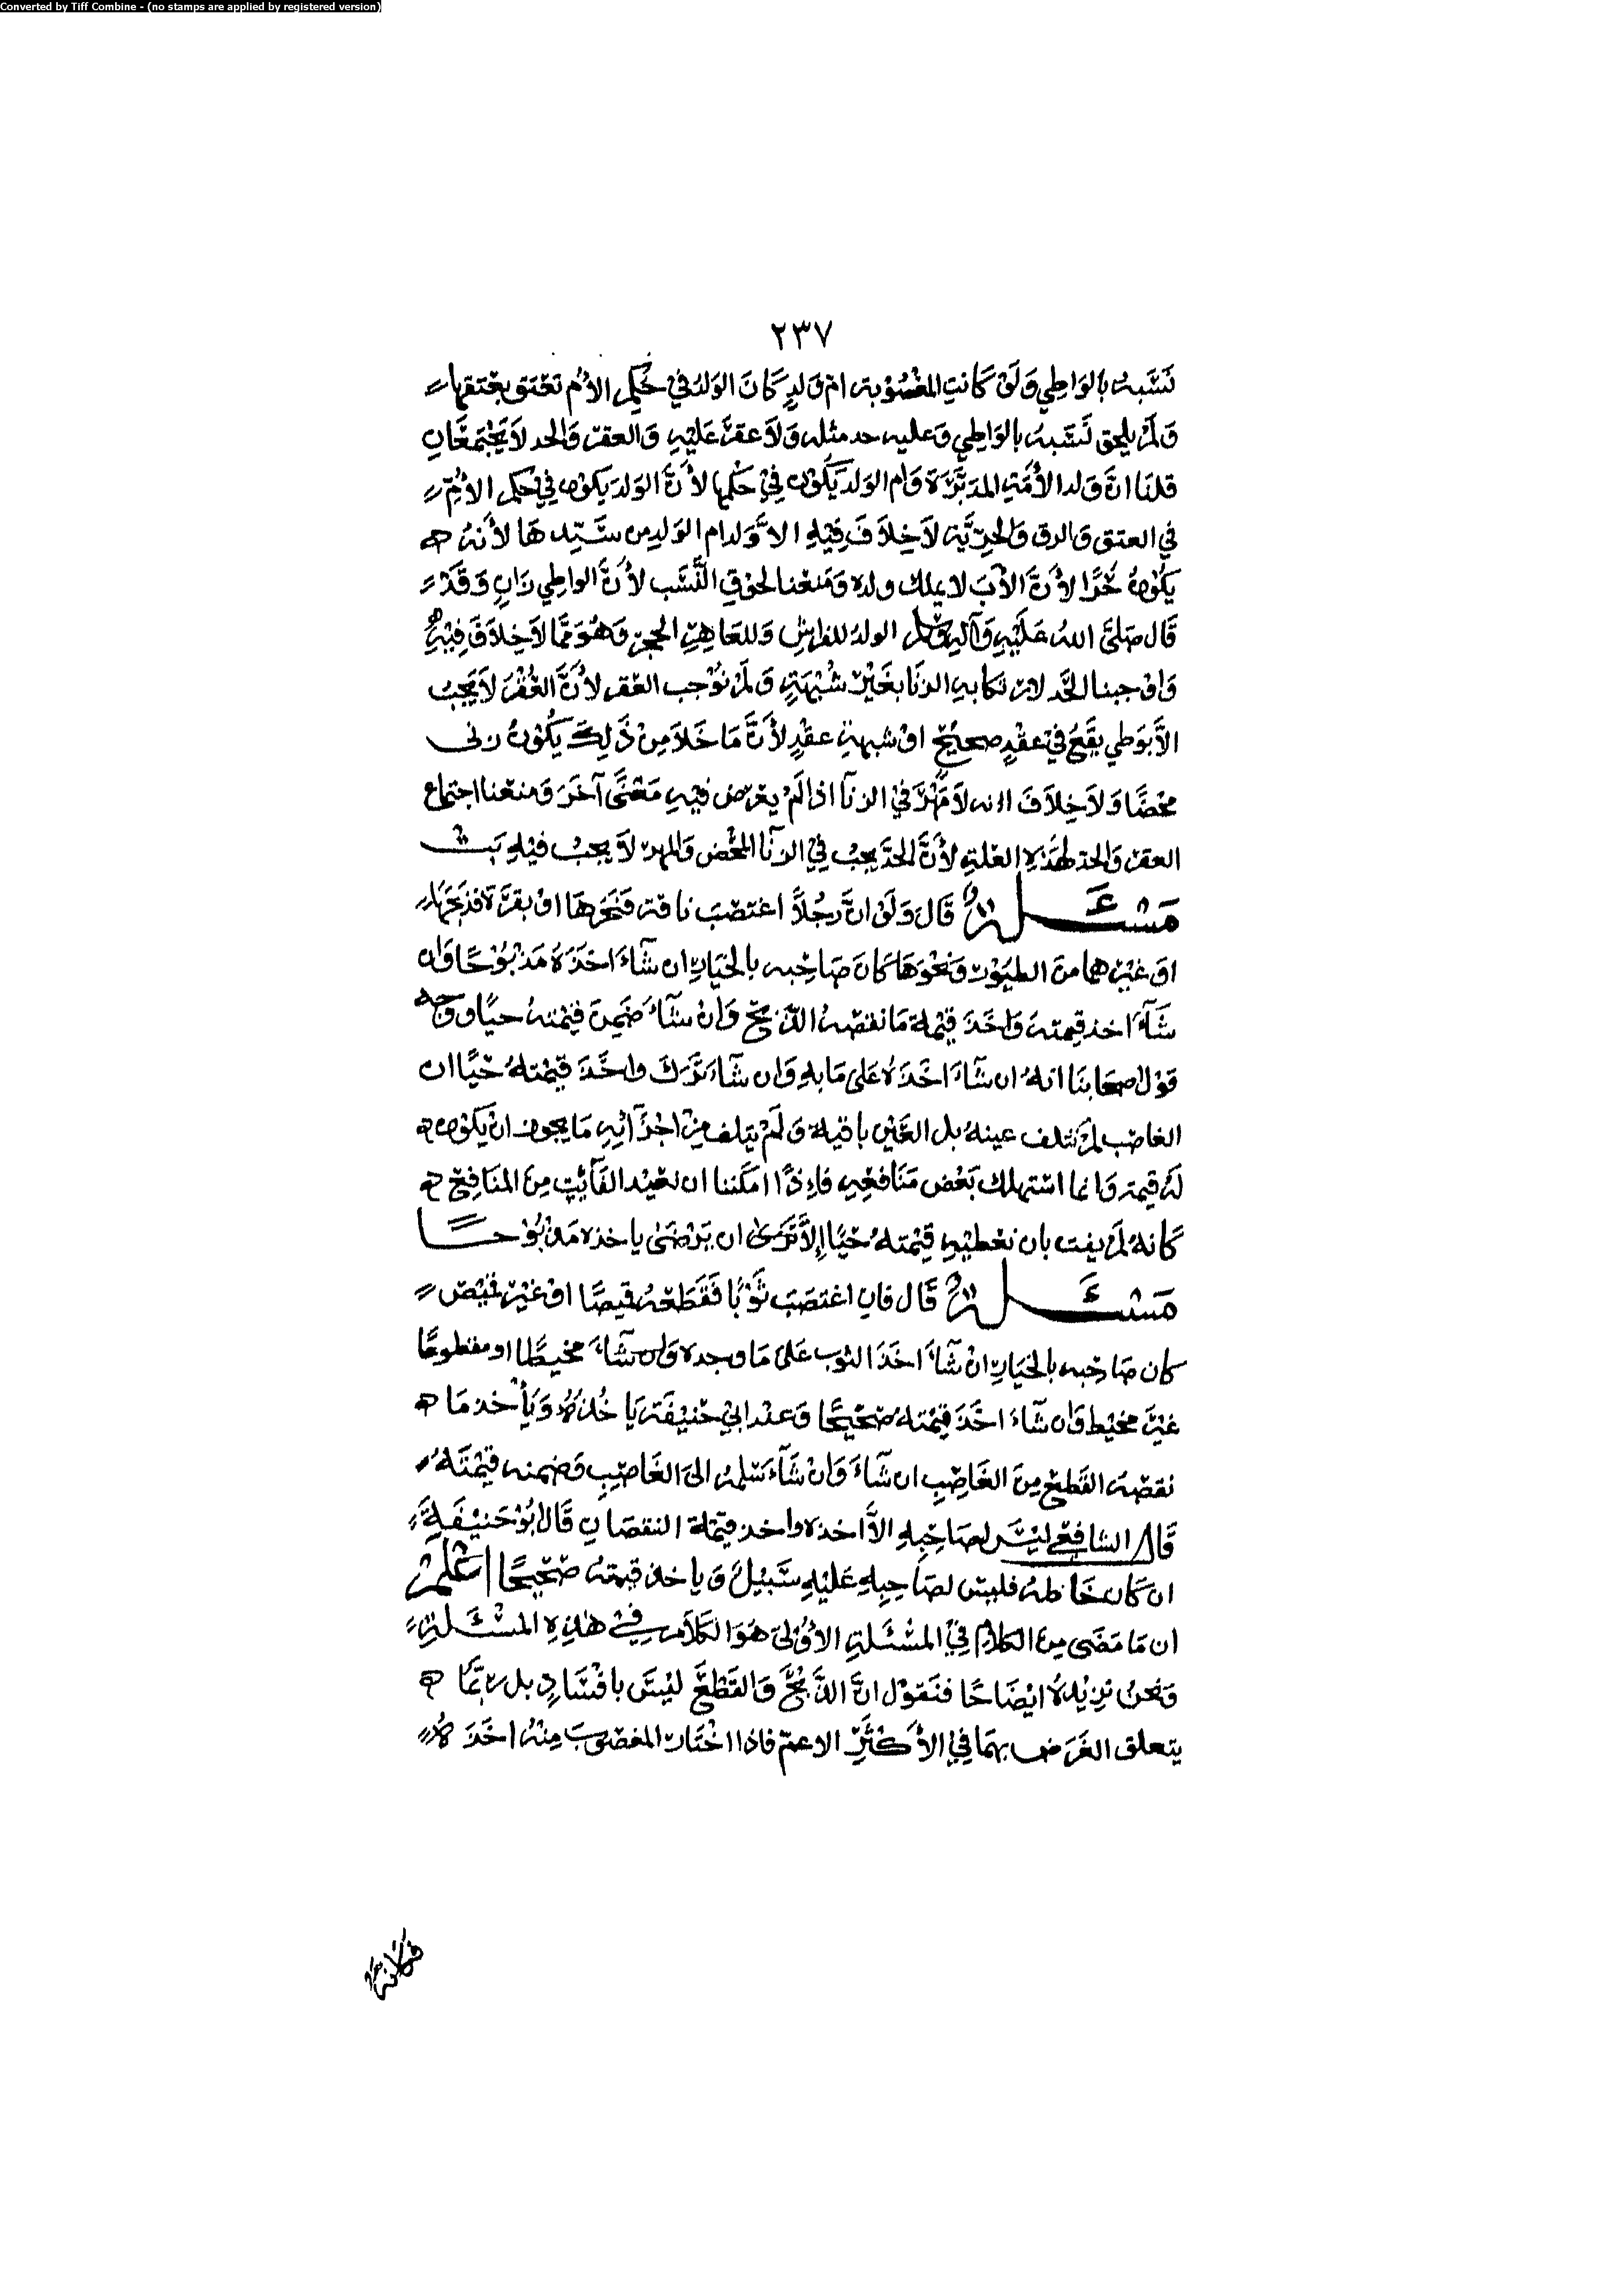 Converted by Tiff Combine - (no stamps are applied by registered version)
٢٣٧
نسبه بالواطي ولو كانت المغصوبة ام ولد كان الولد في حكم الأم تعتق بعتقها
ولم يلحق نسبه بالواطي وعليه حد مثله ولا عقر عليه والعقر والحد لا يجتمعان
قلنا ان ولد الأمة المدبرة وام الولد يكون في حكمها لأن الولد يكون في حكم الام
في العتق والرق والحرية لا خلاف فيه الا ولد ام الولد من سيدها لأنه
يكون حرا لأن الأب لا يملك ولده ومنعنا لحوق النسب لأن الواطي زان وقد
قال صلى الله عليه وآله وسلم الولد للفراش وللعاهر الحجر وهو مما لا خلاف فيه
واوجبنا الحد لارتكابه الزنا بغير شبهة ولم نوجب العقر لأن العقر لا يجب
الا بوطي يقع في عقد صحيح او شبهة عقد لأن ما خلا من ذلك يكون زنى
محضا ولا خلاف انه لا مهر في الزنا اذا لم يعرض فيه معنى آخر ومنعنا اجتماع
العقر والحد لهذه العلة لأن الحد يجب في الزنا المحض والمهر لا يجب فيه بتت
مسئلة قال ولو ان رجلا اغتصب ناقة فنحرها او بقرة فذبحها
او غيرهما من الطيور ونحوها كان صاحبه بالخيار ان شاء اخذه مذبوحا وان
شاء اخذ قيمته واخذ قيمة ما نقصه الذبح وان شاء ضمن قيمته حيا ووجه
قول اصحابنا انه ان شاء اخذه على ما به وان شاء ترك واخذ قيمته حيا ان
الغاصب لم تتلف عينه بل العين باقية ولم يتلف من اجزائه ما يجوز ان يكون
له قيمة وانما استهلك بعض منافعه فاذا امكننا ان نعيد الفائت من المنافع
كانه لم يفت بان نعطيه قيمته حيا الا ترى ان يرضى ياخذه مذبوحا
مسئلة قال فان اغتصب ثوبا فقطعه قميصا او غير قميص
كان صاحبه بالخيار ان شاء اخذ الثوب على ما وجده وان شاء مخيطا او مقطوعا
غير مخيط وان شاء اخذ قيمته صحيحا وعند ابي حنيفة ياخذه ويأخذ ما
نقصه القطع من الغاصب ان شاء وان شاء سلمه الى الغاصب وضمنه قيمته
قال الشافعي ليس لصاحبه الا اخذه واخذ قيمة النقصان قال ابو حنيفة
ان كان خاطه فليس لصاحبه عليه سبيل وياخذ قيمته صحيحا اعلم
ان ما مضى من الكلام في المسئلة الأولى هو الكلام في هذه المسئلة
ونحن نزيده ايضاحا فنقول ان الذبح والقطع ليس بافساد بل ربما
يتعلق الغرض بهما في الأكثر الاعم فاذا اختار المغصوب منه اخذه